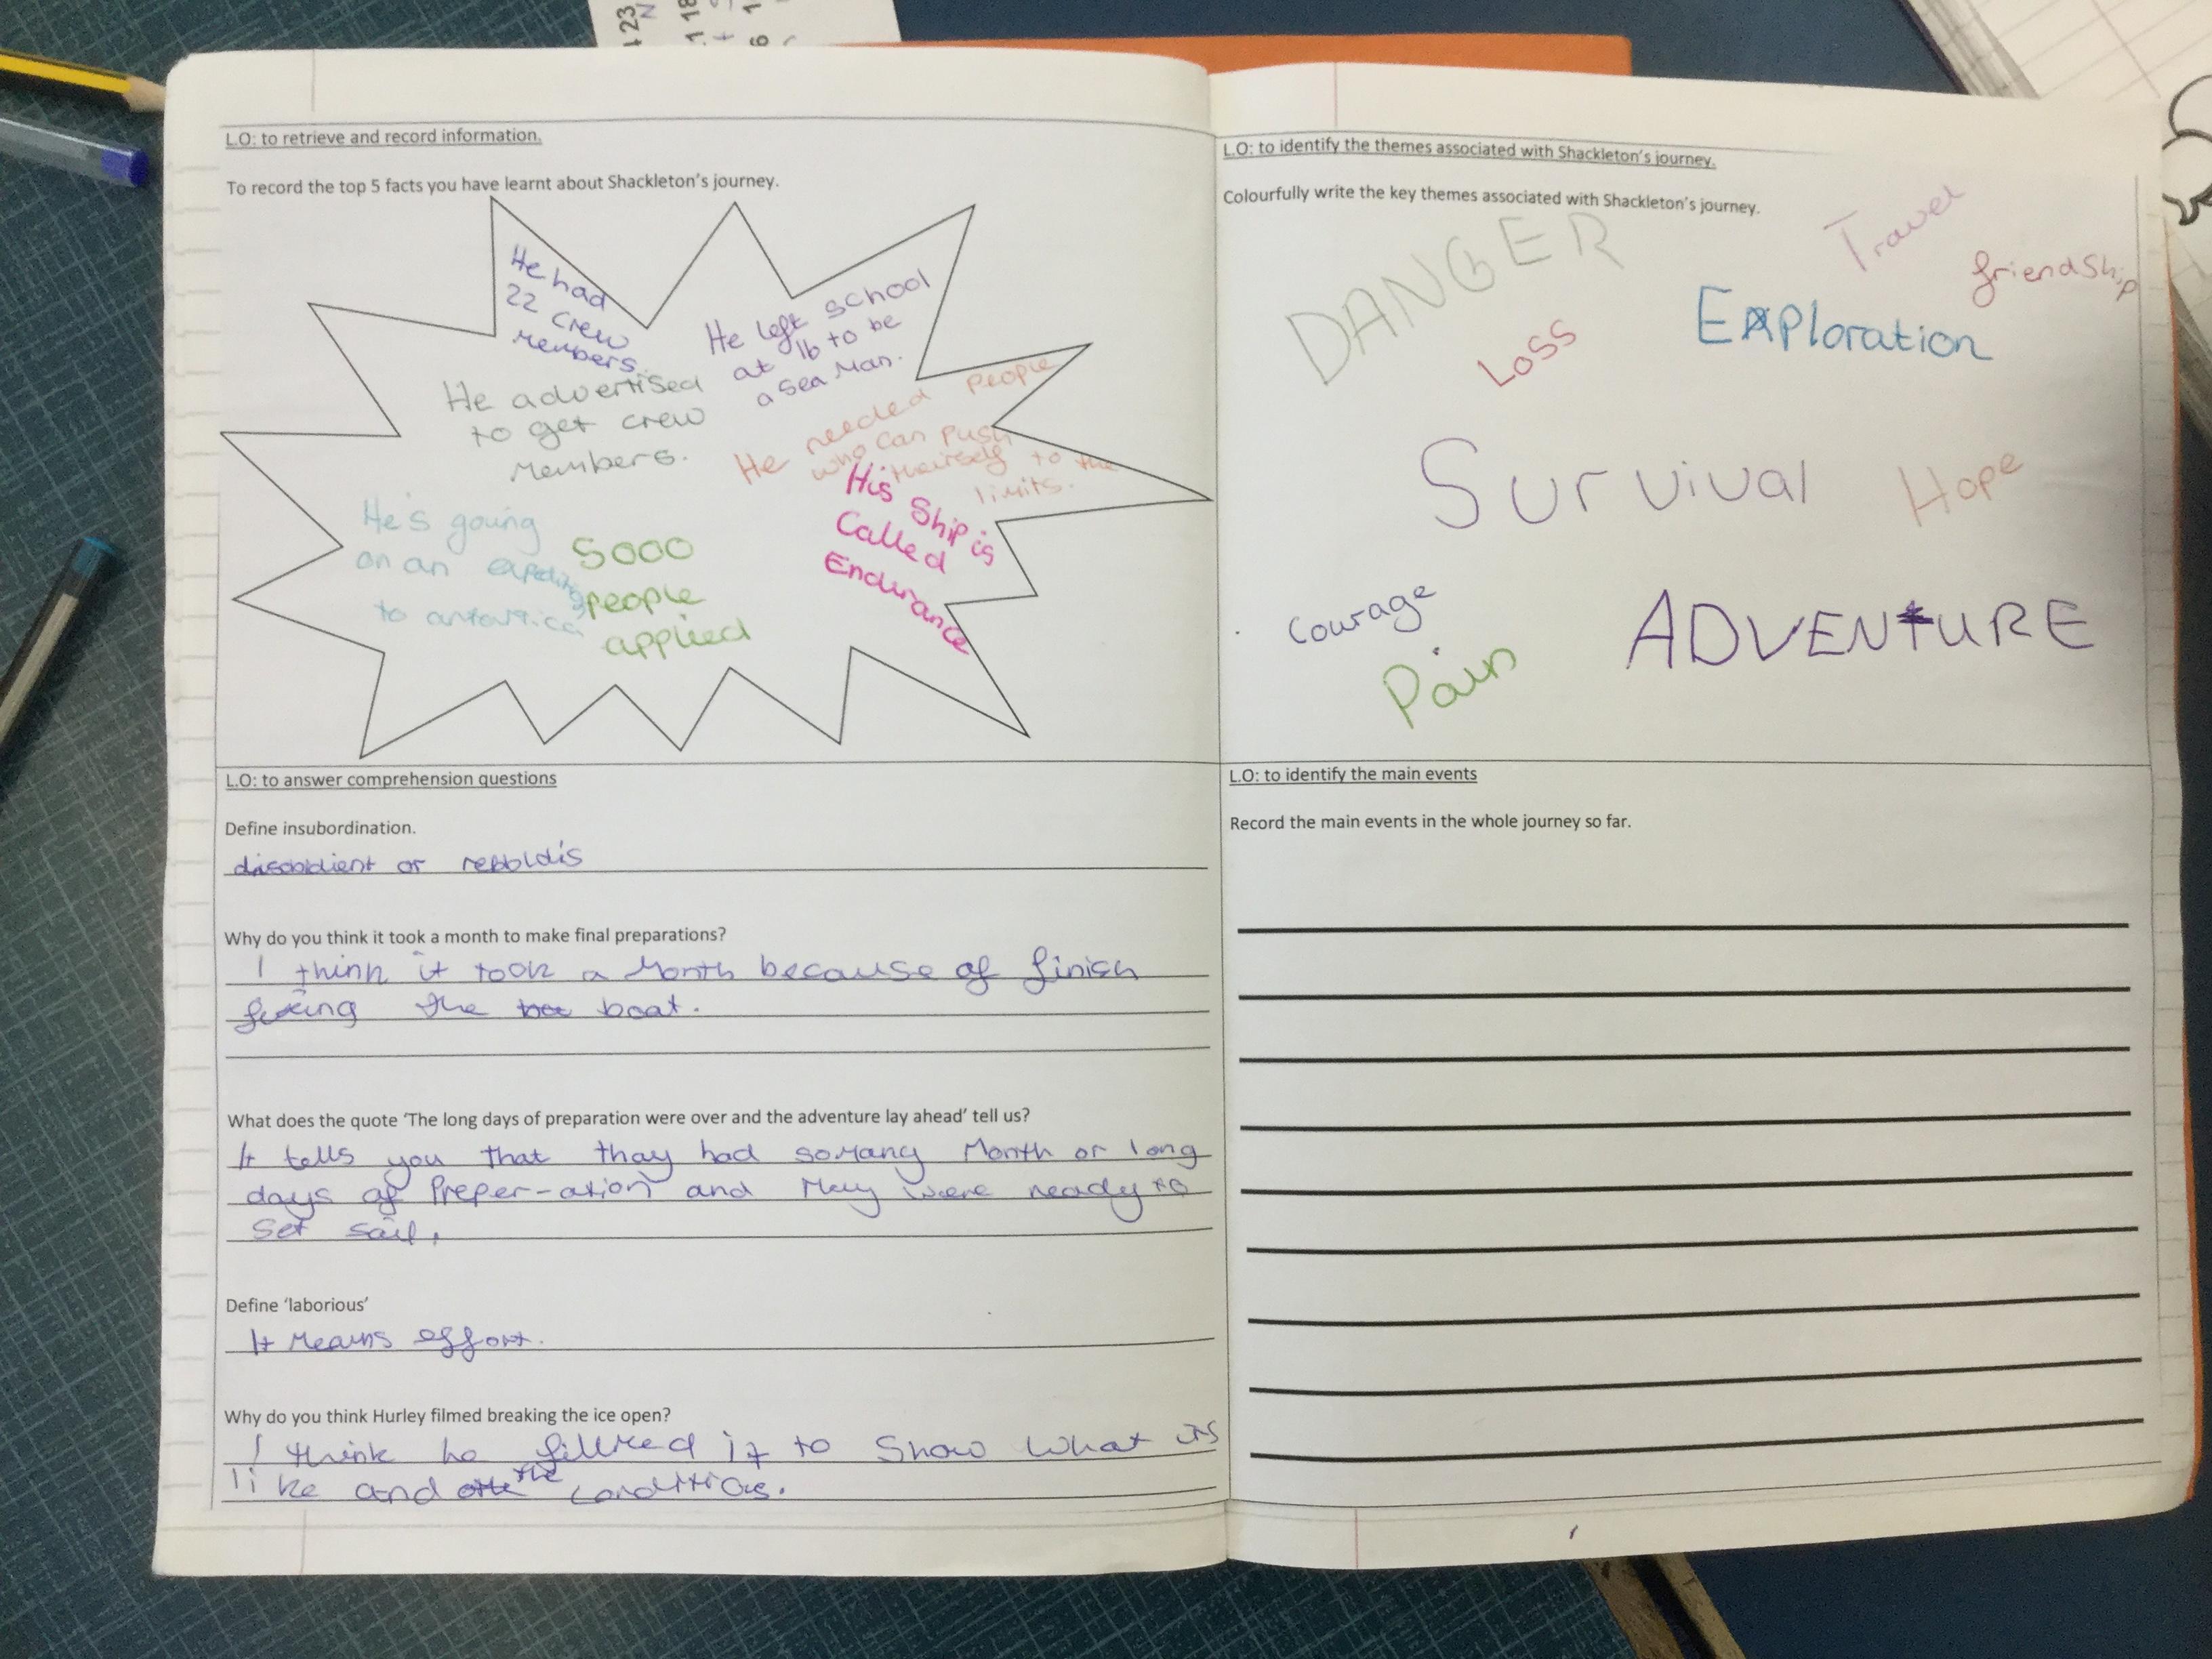 L.O: to retrieve and record information.
To record the top 5 facts you have learnt about Shackleton's journey.
He had
22 crew
members.
He left school
at 16 to be
a sea man.
He advertised
to get crew
members.
He needed people
who can push
theirself to the
limits.
His Ship is
Called
Endurance
He's going
on an
to antartica
5000
people
applied
L.O: to answer comprehension questions
Define insubordination.
disobldient or rebbldis
Why do you think it took a month to make final preparations?
I think it took a Month because of finish
fixing the boat.
What does the quote 'The long days of preparation were over and the adventure lay ahead' tell us?
It tells you that thay had somany Month or long
days of Preper-ation and they were ready to
Set sail.
Define 'laborious'
It Means effort.
Why do you think Hurley filmed breaking the ice open?
I think he filmed it to Show what its
like and the conditions.
L.O: to identify the themes associated with Shackleton's journey.
Colourfully write the key themes associated with Shackleton's journey.
DANGER
Travel
friendShip
Loss
Exploration
Survival
Hope
Courage
Pain
ADVENtURE
L.O: to identify the main events
Record the main events in the whole journey so far.